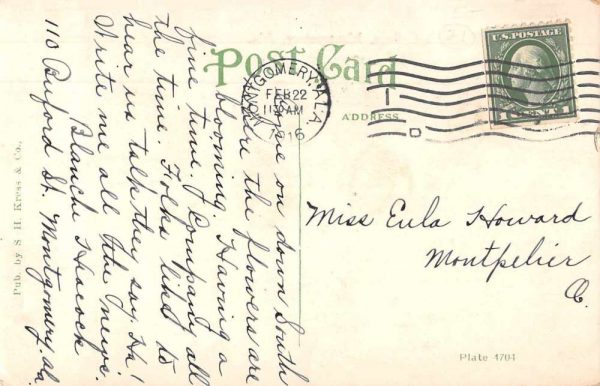 Post Card
ADDRESS
MONTGOMERY, ALA.
FEB 22
11 30 AM
1916
U.S. POSTAGE
1 CENT 1
D
Come on down South
where the flowers are
blooming. Having a
fine time. Company all
the time. Folks like to
hear us talk they say. Ha!
Write me all the news.
Blanche
110 St. Montgomery, Ala.
Miss Eula Howard
Montpelier
O.
Pub. by S. H. Kress & Co.
Plate 4704